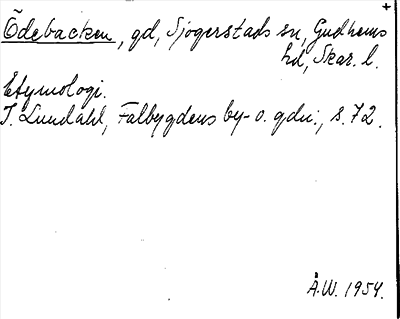 +
Ödebacken, gd, Sjögerstads sn, Gudhems
hd, Skar. l.
Etymologi.
I. Lundahl, Falbygdens by- o. gdn:, s. 72.
Å.W. 1954.